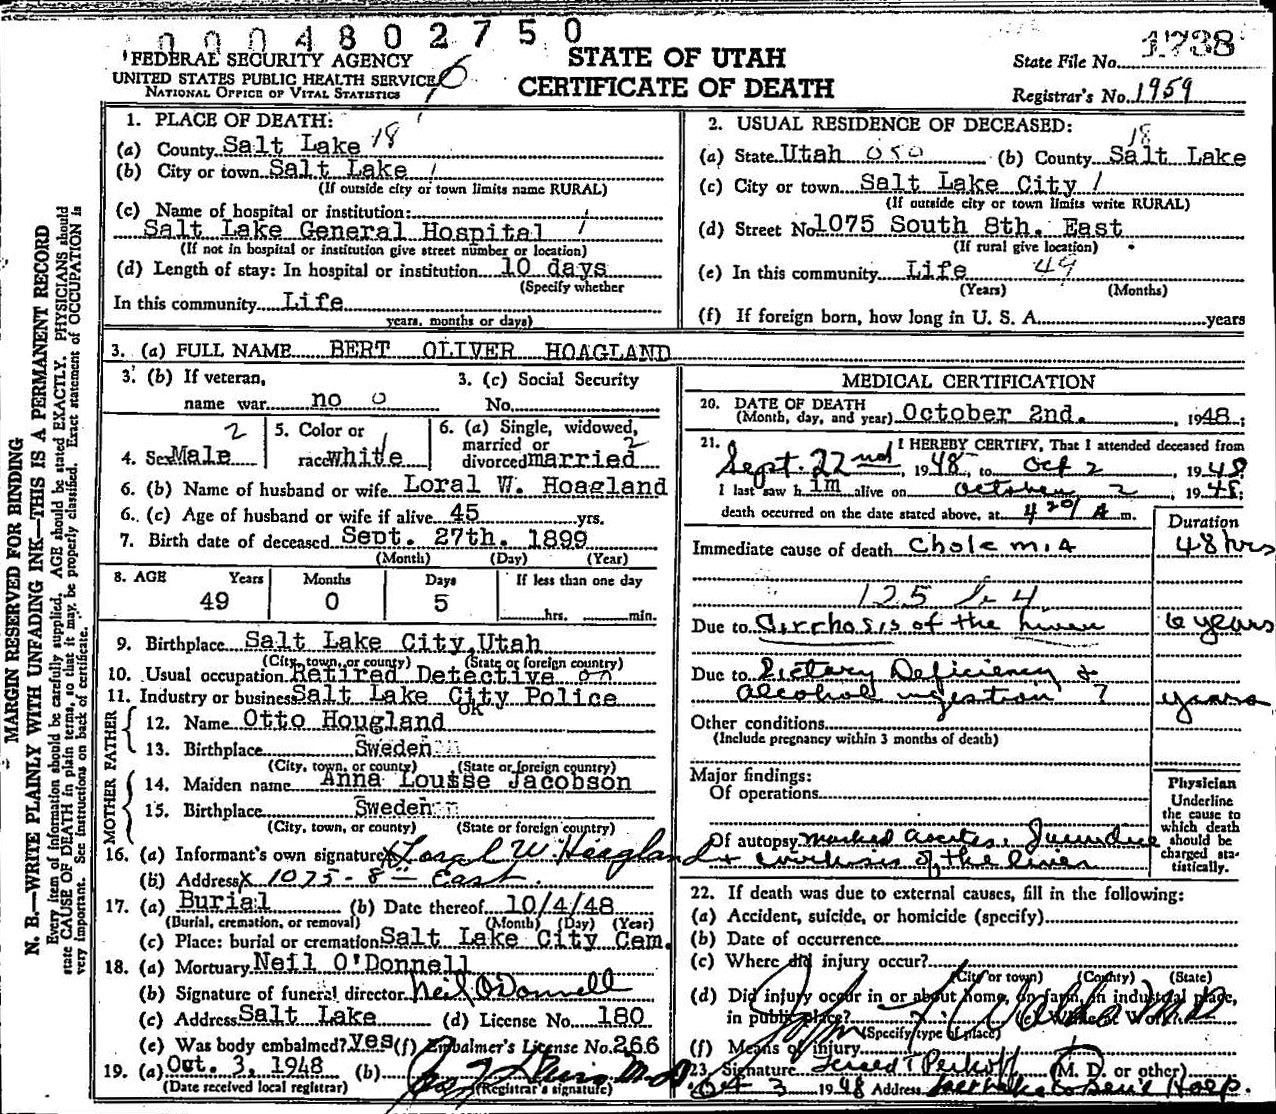 0004802750
FEDERAL SECURITY AGENCY
UNITED STATES PUBLIC HEALTH SERVICE
NATIONAL OFFICE OF VITAL STATISTICS
STATE OF UTAH
CERTIFICATE OF DEATH
State File No. 1738
Registrar's No. 1959
MARGIN RESERVED FOR BINDING
N. B.—WRITE PLAINLY WITH UNFADING INK—THIS IS A PERMANENT RECORD
Every item of information should be carefully supplied. AGE should be stated EXACTLY. PHYSICIANS should
state CAUSE OF DEATH in plain terms, so that it may be properly classified. Exact statement of OCCUPATION is
very important. See instructions on back of certificate.
1. PLACE OF DEATH:
(a) County Salt Lake 18
(b) City or town Salt Lake 1
(If outside city or town limits name RURAL)
(c) Name of hospital or institution:
Salt Lake General Hospital 1
(If not in hospital or institution give street number or location)
(d) Length of stay: In hospital or institution 10 days
(Specify whether
In this community Life
years, months or days)
2. USUAL RESIDENCE OF DECEASED:
18
(a) State Utah 050 (b) County Salt Lake
(c) City or town Salt Lake City 1
(If outside city or town limits write RURAL)
(d) Street No 1075 South 8th. East
(If rural give location)
(e) In this community Life 49
(Years) (Months)
(f) If foreign born, how long in U. S. A. years
3. (a) FULL NAME BERT OLIVER HOAGLAND
3. (b) If veteran, 3. (c) Social Security
name war no 0 No.
4. Sex Male 2 5. Color or race white 1 6. (a) Single, widowed, married or divorced married 2
6. (b) Name of husband or wife Loral W. Hoagland
6. (c) Age of husband or wife if alive 45 yrs.
7. Birth date of deceased Sept. 27th. 1899
(Month) (Day) (Year)
8. AGE Years Months Days If less than one day
49 0 5 hrs. min.
9. Birthplace Salt Lake City, Utah
(City, town, or county) (State or foreign country)
10. Usual occupation Retired Detective
11. Industry or business Salt Lake City Police
OK
FATHER
12. Name Otto Hougland
13. Birthplace Sweden
(City, town, or county) (State or foreign country)
MOTHER
14. Maiden name Anna Lousse Jacobson
15. Birthplace Sweden
(City, town, or county) (State or foreign country)
16. (a) Informant's own signature X Loral W Hoagland
(b) Address X 1075 - 8th East.
17. (a) Burial (b) Date thereof 10/4/48
(Burial, cremation, or removal) (Month) (Day) (Year)
(c) Place: burial or cremation Salt Lake City Cem.
18. (a) Mortuary Neil O'Donnell
(b) Signature of funeral director Neil O'Donnell
(c) Address Salt Lake (d) License No. 180
(e) Was body embalmed? yes (f) Embalmer's License No. 266
19. (a) Oct. 3, 1948 (b)
(Date received local registrar) (Registrar's signature)
MEDICAL CERTIFICATION
20. DATE OF DEATH
(Month, day, and year) October 2nd. , 1948;
21. I HEREBY CERTIFY, That I attended deceased from
Sept. 22nd, 1948, to Oct 2 1948
I last saw h im alive on October 2, 1948;
death occurred on the date stated above, at 420/A m.
Duration
Immediate cause of death Cholemia 48 hrs
125
Due to Cirrhosis of the liver 6 years
Due to Dietary Deficiency &
alcohol ingestion ? years
Other conditions
(Include pregnancy within 3 months of death)
Major findings:
Of operations
Of autopsy marked ascites. Jaundice
& cirrhosis of the liver
Physician
Underline
the cause to
which death
should be
charged sta-
tistically.
22. If death was due to external causes, fill in the following:
(a) Accident, suicide, or homicide (specify)
(b) Date of occurrence
(c) Where did injury occur?
(City or town) (County) (State)
(d) Did injury occur in or about home, on farm, in industrial place,
in public place?
(Specify type of place)
(f) Means of injury
23. Signature Gerald T Perkoff (M. D. or other)
Oct 3 1948 Address Salt Lake Co Genl Hosp.